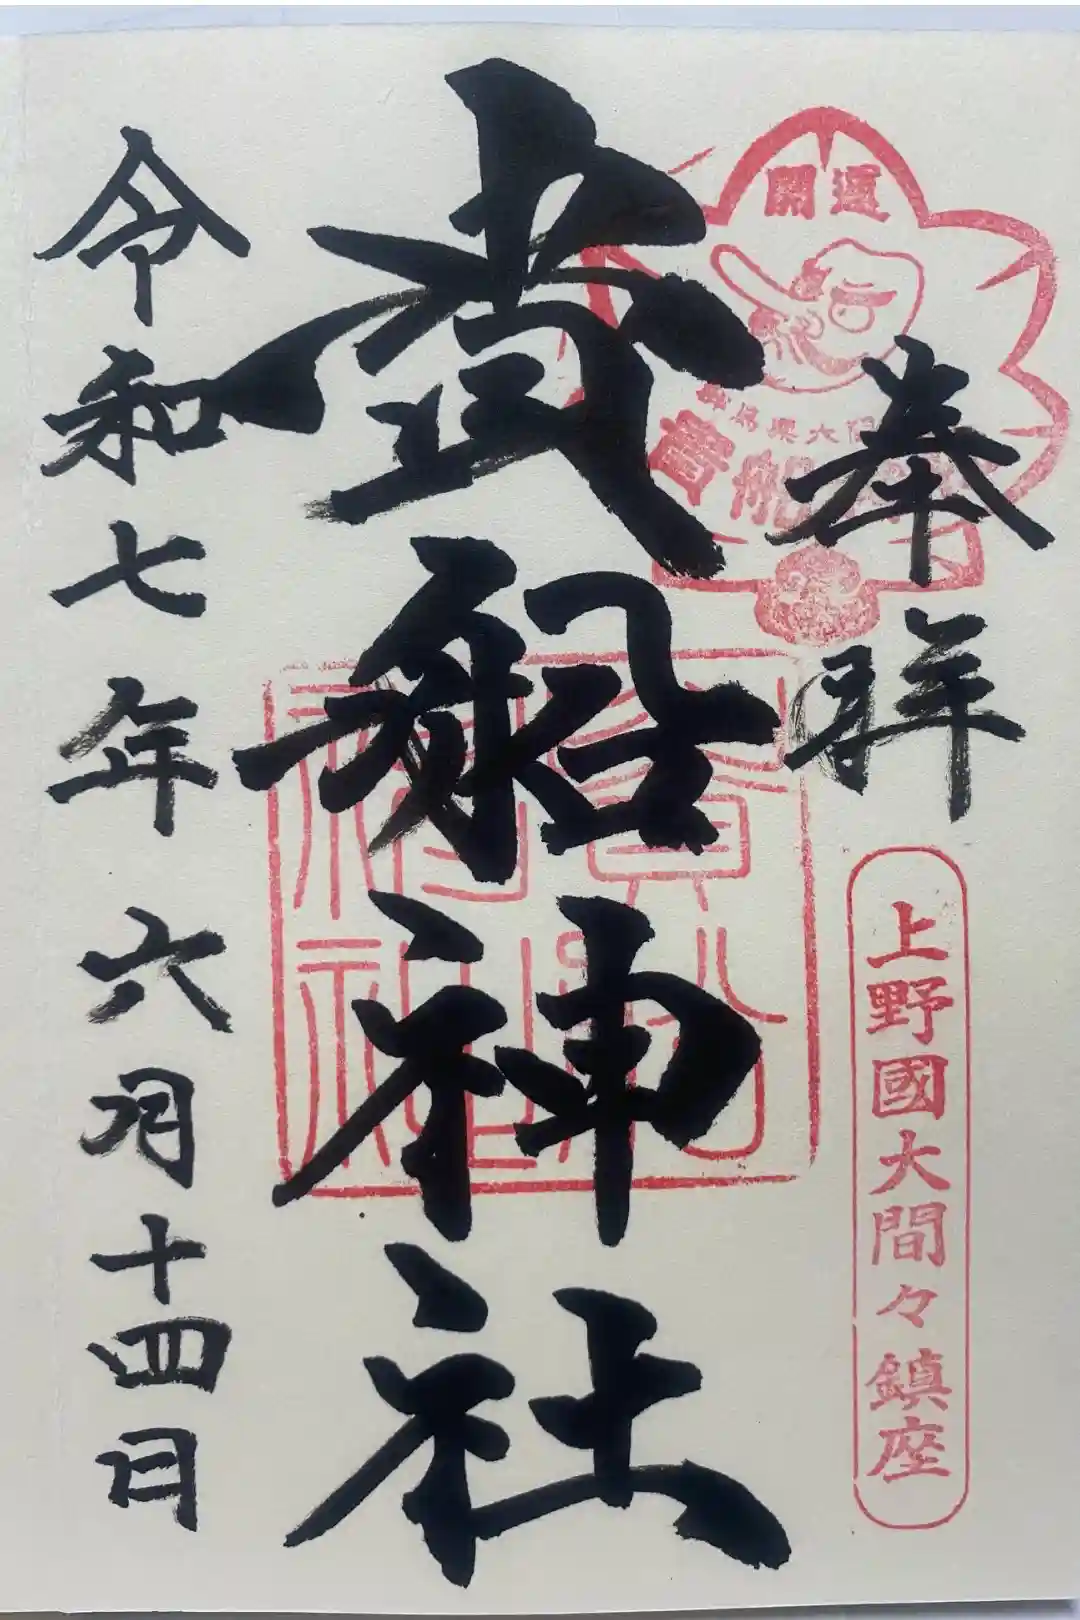 奉拝
開運
群馬県大間
貴船
上野國大間々鎮座
貴船神社
令和七年六月十四日